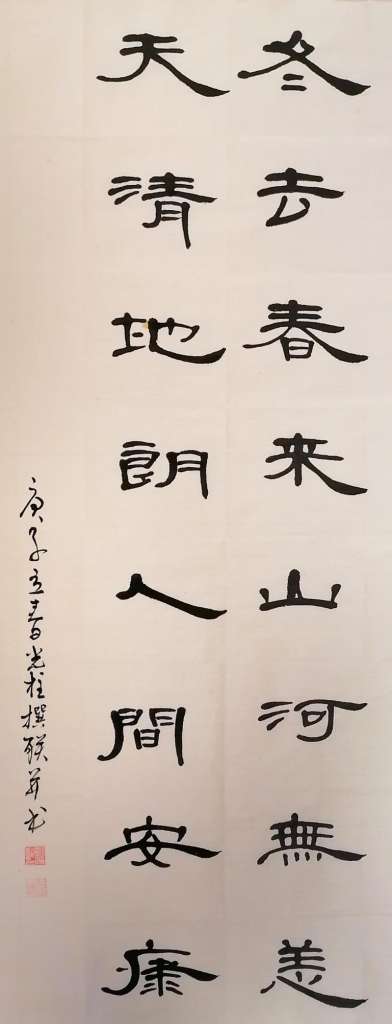 冬去春来山河無恙
天清地朗人間安康
庚子立春光柱撰联并书